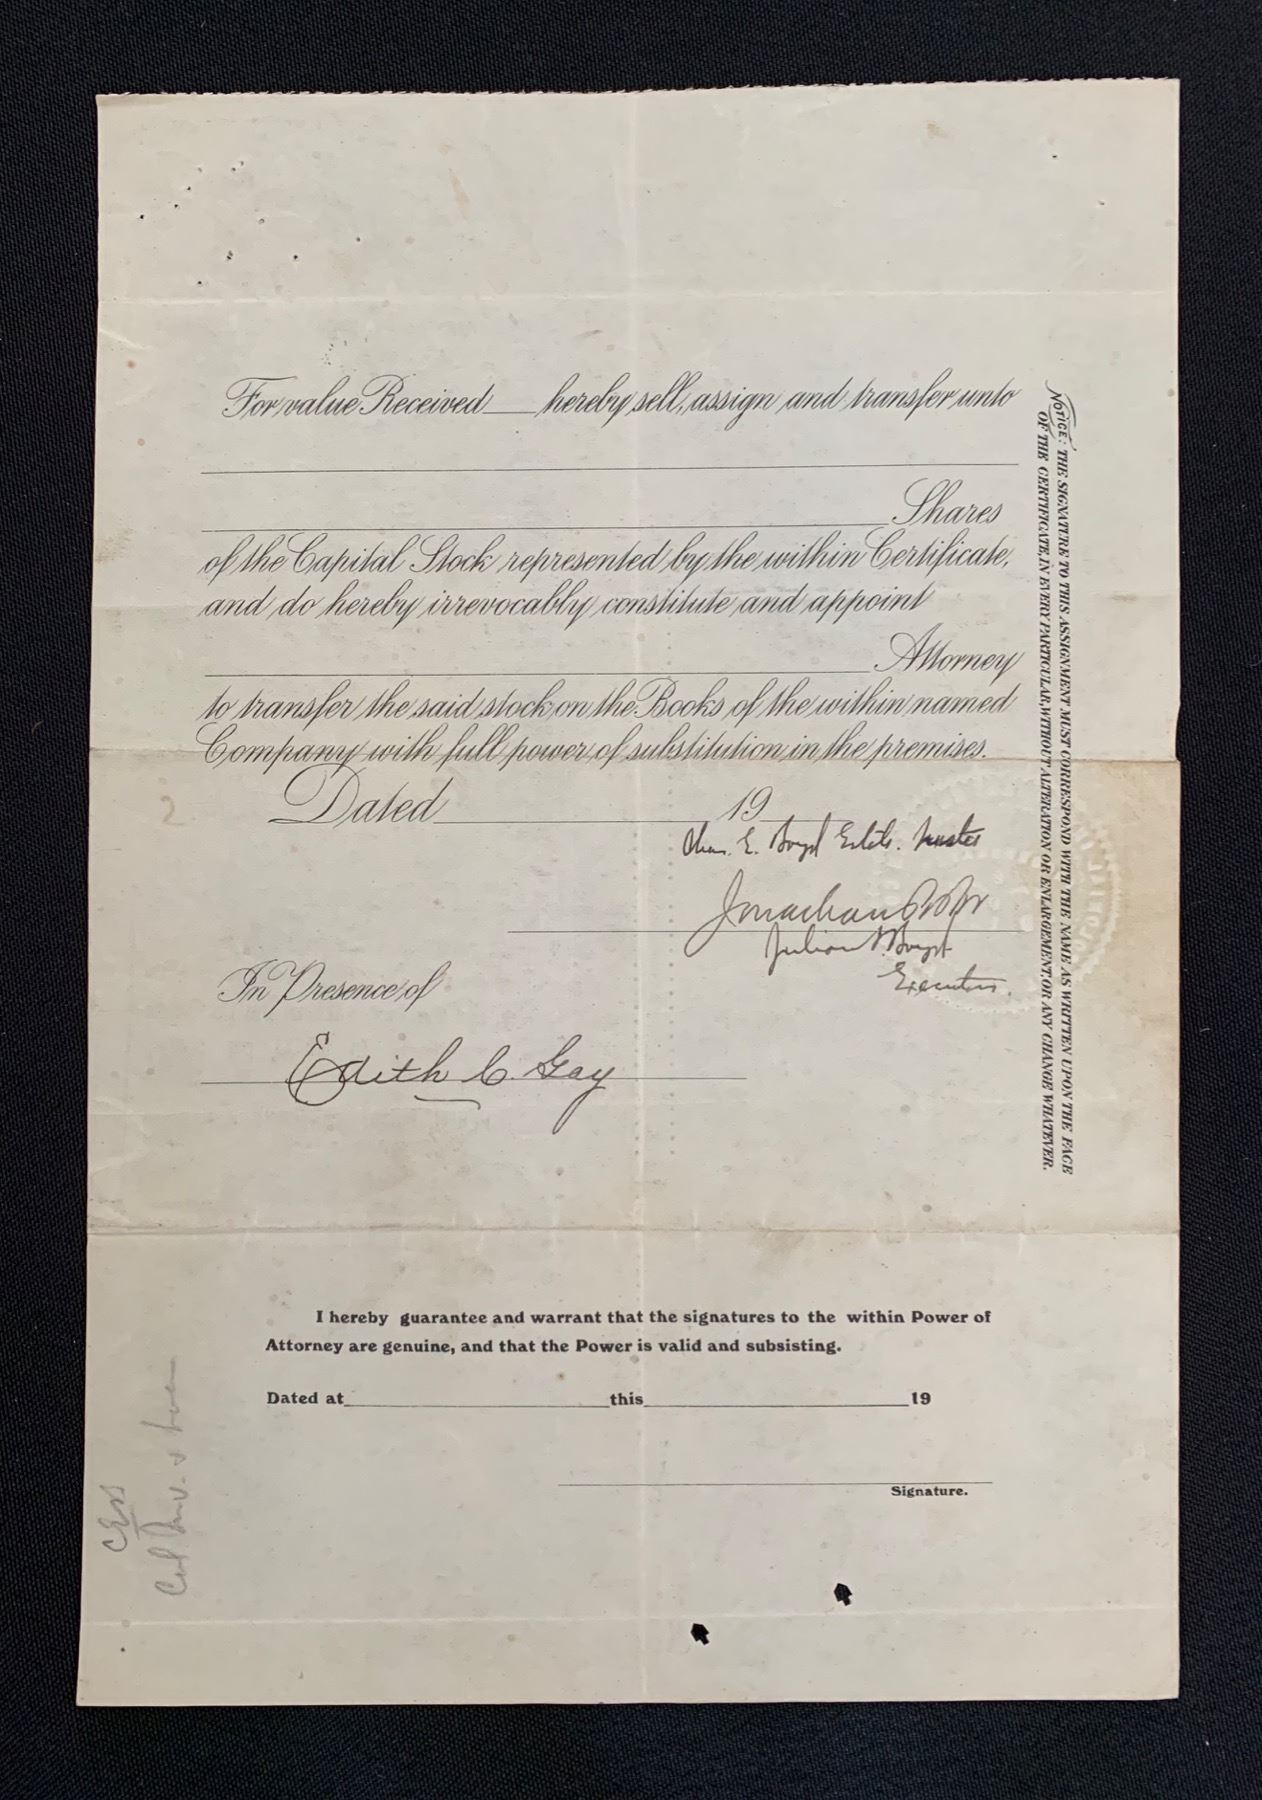 For value Received ___ hereby sell, assign and transfer unto
Shares
of the Capital Stock represented by the within Certificate,
and do hereby irrevocably constitute and appoint
Attorney
to transfer the said stock on the Books of the within named
Company with full power of substitution in the premises.
Dated 19
Chas. E. Boyd Estate. Trustee
Jonathan
Julian Boyd
Executors.
In Presence of
Edith C. Gay
NOTICE: THE SIGNATURE TO THIS ASSIGNMENT MUST CORRESPOND WITH THE NAME AS WRITTEN UPON THE FACE
OF THE CERTIFICATE, IN EVERY PARTICULAR, WITHOUT ALTERATION OR ENLARGEMENT, OR ANY CHANGE WHATEVER.
2
I hereby guarantee and warrant that the signatures to the within Power of
Attorney are genuine, and that the Power is valid and subsisting.
Dated at this 19
Signature.